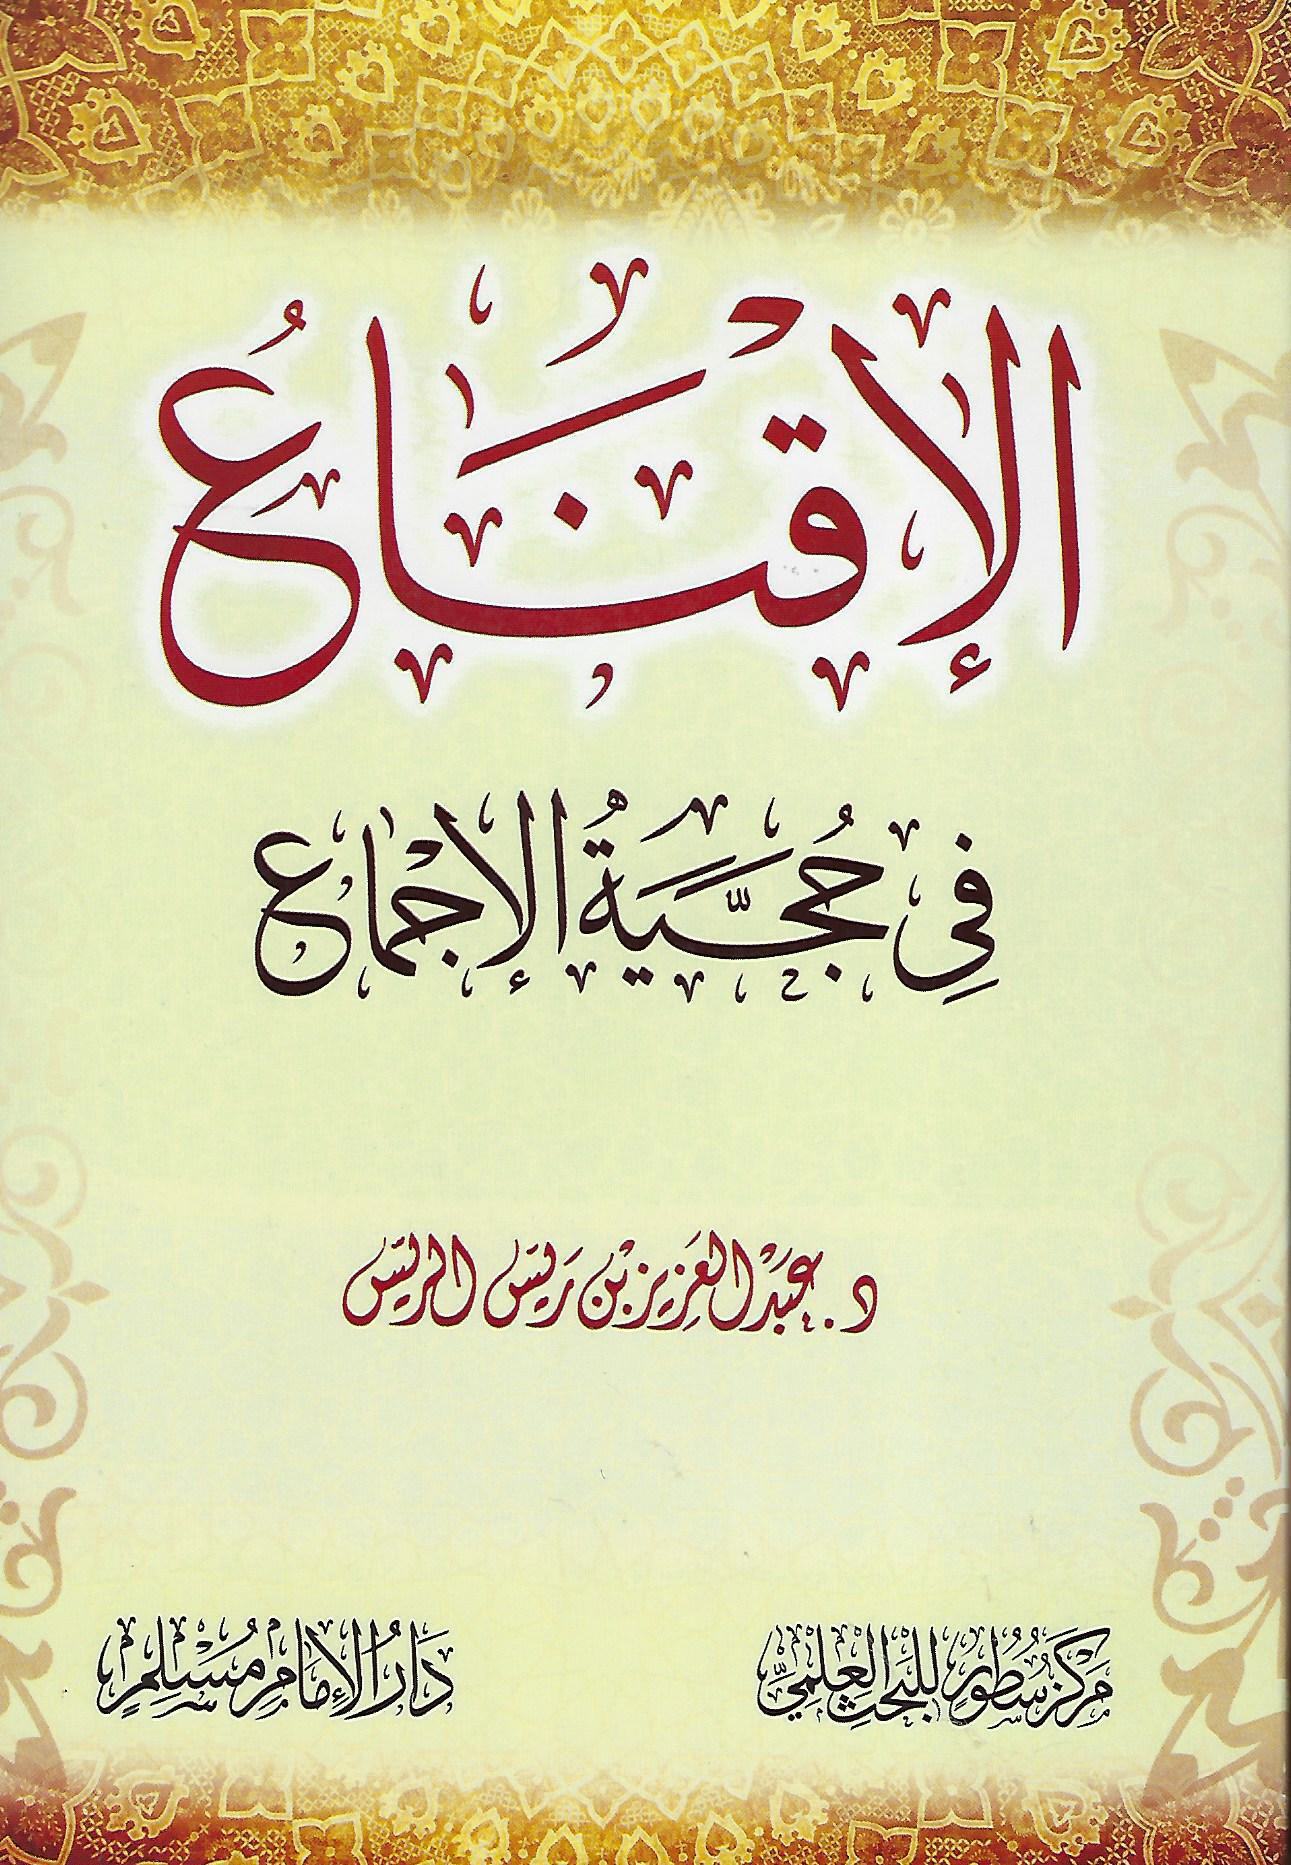 الإقْنَاعُ
فِي حُجِّيَّةِ الإجْمَاعِ
د. عَبْد العَزِيز بْن رَيِّس الرَيِّس
مَرْكَز سُطُورٍ لِلْبَحْثِ العِلْمِيِّ
دَارُ الإِمَامِ مُسْلِمٍ